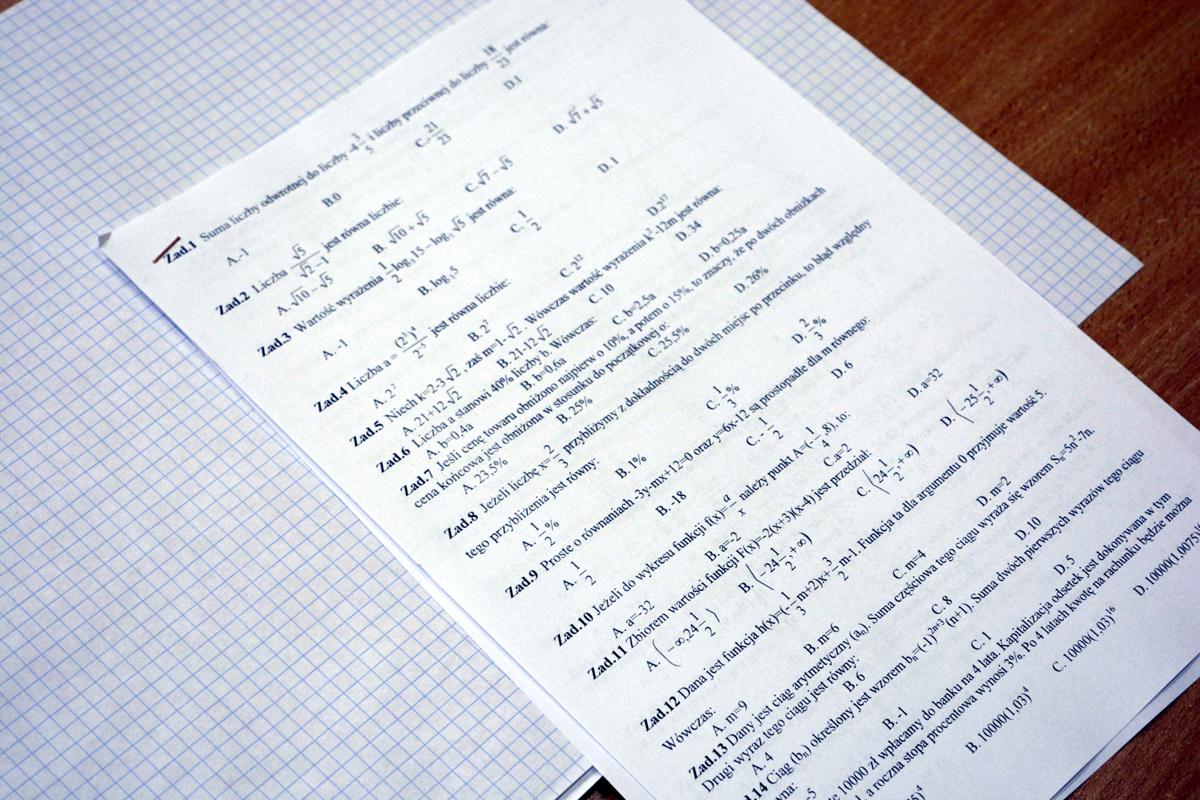 Zad.1 Suma liczby odwrotnej do liczby -4 3/5 i liczby przeciwnej do liczby 18/23 jest równa:
A.-1 B.0 C.-21/23 D.1
Zad.2 Liczba √5/(√2-1) jest równa liczbie:
A.√10-√5 B. √10+√5 C.√7-√5 D. √7+√5
Zad.3 Wartość wyrażenia 1/2 log 15-log √5 jest równa:
A. -1 B. log 5 C. 1/2 D. 1
Zad.4 Liczba a = jest równa liczbie:
A. 2² B. 2⁷ C.2¹² D.2¹⁷
Zad.5 Niech k=2-3√2, zaś m=1-√2. Wówczas wartość wyrażenia k²-12m jest równa:
A. 21+12√2 B. 21-12√2 C. 10 D. 34
Zad.6 Liczba a stanowi 40% liczby b. Wówczas:
A. b=0,4a B. b=0,6a C. b=2,5a D. b=0,25a
Zad.7 Jeśli cenę towaru obniżono najpierw o 10%, a potem o 15%, to znaczy, że po dwóch obniżkach
cena końcowa jest obniżona w stosunku do początkowej o:
A. 23,5% B. 25% C. 25,5% D. 26%
Zad.8 Jeżeli liczbę x=2/3 przybliżymy z dokładnością do dwóch miejsc po przecinku, to błąd względny
tego przybliżenia jest równy:
A. 1/2% B. 1% C. 1/3% D. 2/3%
Zad.9 Proste o równaniach -3y-mx+12=0 oraz y=6x-12 są prostopadłe dla m równego:
A. 1/2 B. -18 C.-1/2 D. 6
Zad.10 Jeżeli do wykresu funkcji f(x)=a/x należy punkt A=(-1/4,8), to:
A. a=-32 B. a=-2 C.a=2 D. a=32
Zad.11 Zbiorem wartości funkcji F(x)=-2(x+3)(x-4) jest przedział:
A. (-∞,24 1/2⟩ B. ⟨-24 1/2,+∞) C. ⟨24 1/2,+∞) D. ⟨-25 1/2,+∞)
Zad.12 Dana jest funkcja h(x)=(-1/3m+2)x+3/2m-1. Funkcja ta dla argumentu 0 przyjmuje wartość 5.
Wówczas:
A. m=9 B. m=6 C. m=4 D. m=2
Zad.13 Dany jest ciąg arytmetyczny (aₙ). Suma częściowa tego ciągu wyraża się wzorem Sₙ=5n²-7n.
Drugi wyraz tego ciągu jest równy:
A. 4 B. 6 C. 8 D. 10
.14 Ciąg (bₙ) określony jest wzorem bₙ=(-1)²ⁿ⁺³(n+1). Suma dwóch pierwszych wyrazów tego ciągu
-5 B. -1 C. 1 D. 5
10000 zł wpłacamy do banku na 4 lata. Kapitalizacja odsetek jest dokonywana w tym
a roczna stopa procentowa wynosi 3%. Po 4 latach kwotę na rachunku będzie można
B. 10000(1,03)⁴ C. 10000(1,03)¹⁶ D. 10000(1,0075